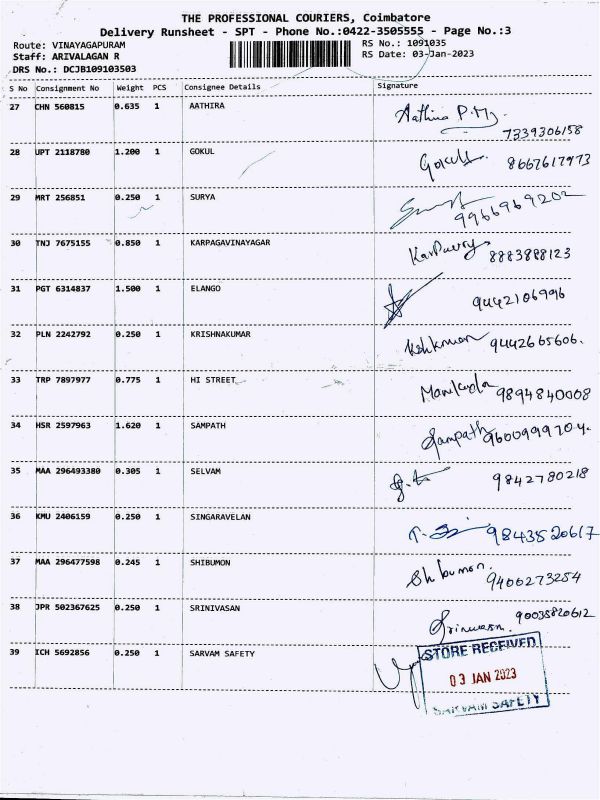 THE PROFESSIONAL COURIERS, Coimbatore
Delivery Runsheet - SPT - Phone No.:0422-3505555 - Page No.:3
Route: VINAYAGAPURAM RS No.: 1091035
Staff: ARIVALAGAN R RS Date: 03-Jan-2023
DRS No.: DCJB109103503
S No Consignment No Weight PCS Consignee Details Signature
27 CHN 560815 0.635 1 AATHIRA Aathira P.M
7339306158
28 UPT 2118780 1.200 1 GOKUL Gokul 8667617973
29 MRT 256851 0.250 1 SURYA
9966969202
30 TNJ 7675155 0.850 1 KARPAGAVINAYAGAR 8883888123
31 PGT 6314837 1.500 1 ELANGO 9442106996
32 PLN 2242792 0.250 1 KRISHNAKUMAR 9442665606.
33 TRP 7897977 0.775 1 HI STREET 9894840008
34 HSR 2597963 1.620 1 SAMPATH Sampath 9600999704.
35 MAA 296493380 0.305 1 SELVAM 9842780218
36 KMU 2406159 0.250 1 SINGARAVELAN 9843520617
37 MAA 296477598 0.245 1 SHIBUMON Shibumon.
9400273254
38 JPR 502367625 0.250 1 SRINIVASAN 90035820612
Srinivasn.
39 ICH 5692856 0.250 1 SARVAM SAFETY
STORE RECEIVED
03 JAN 2023
SARVAM SAFETY